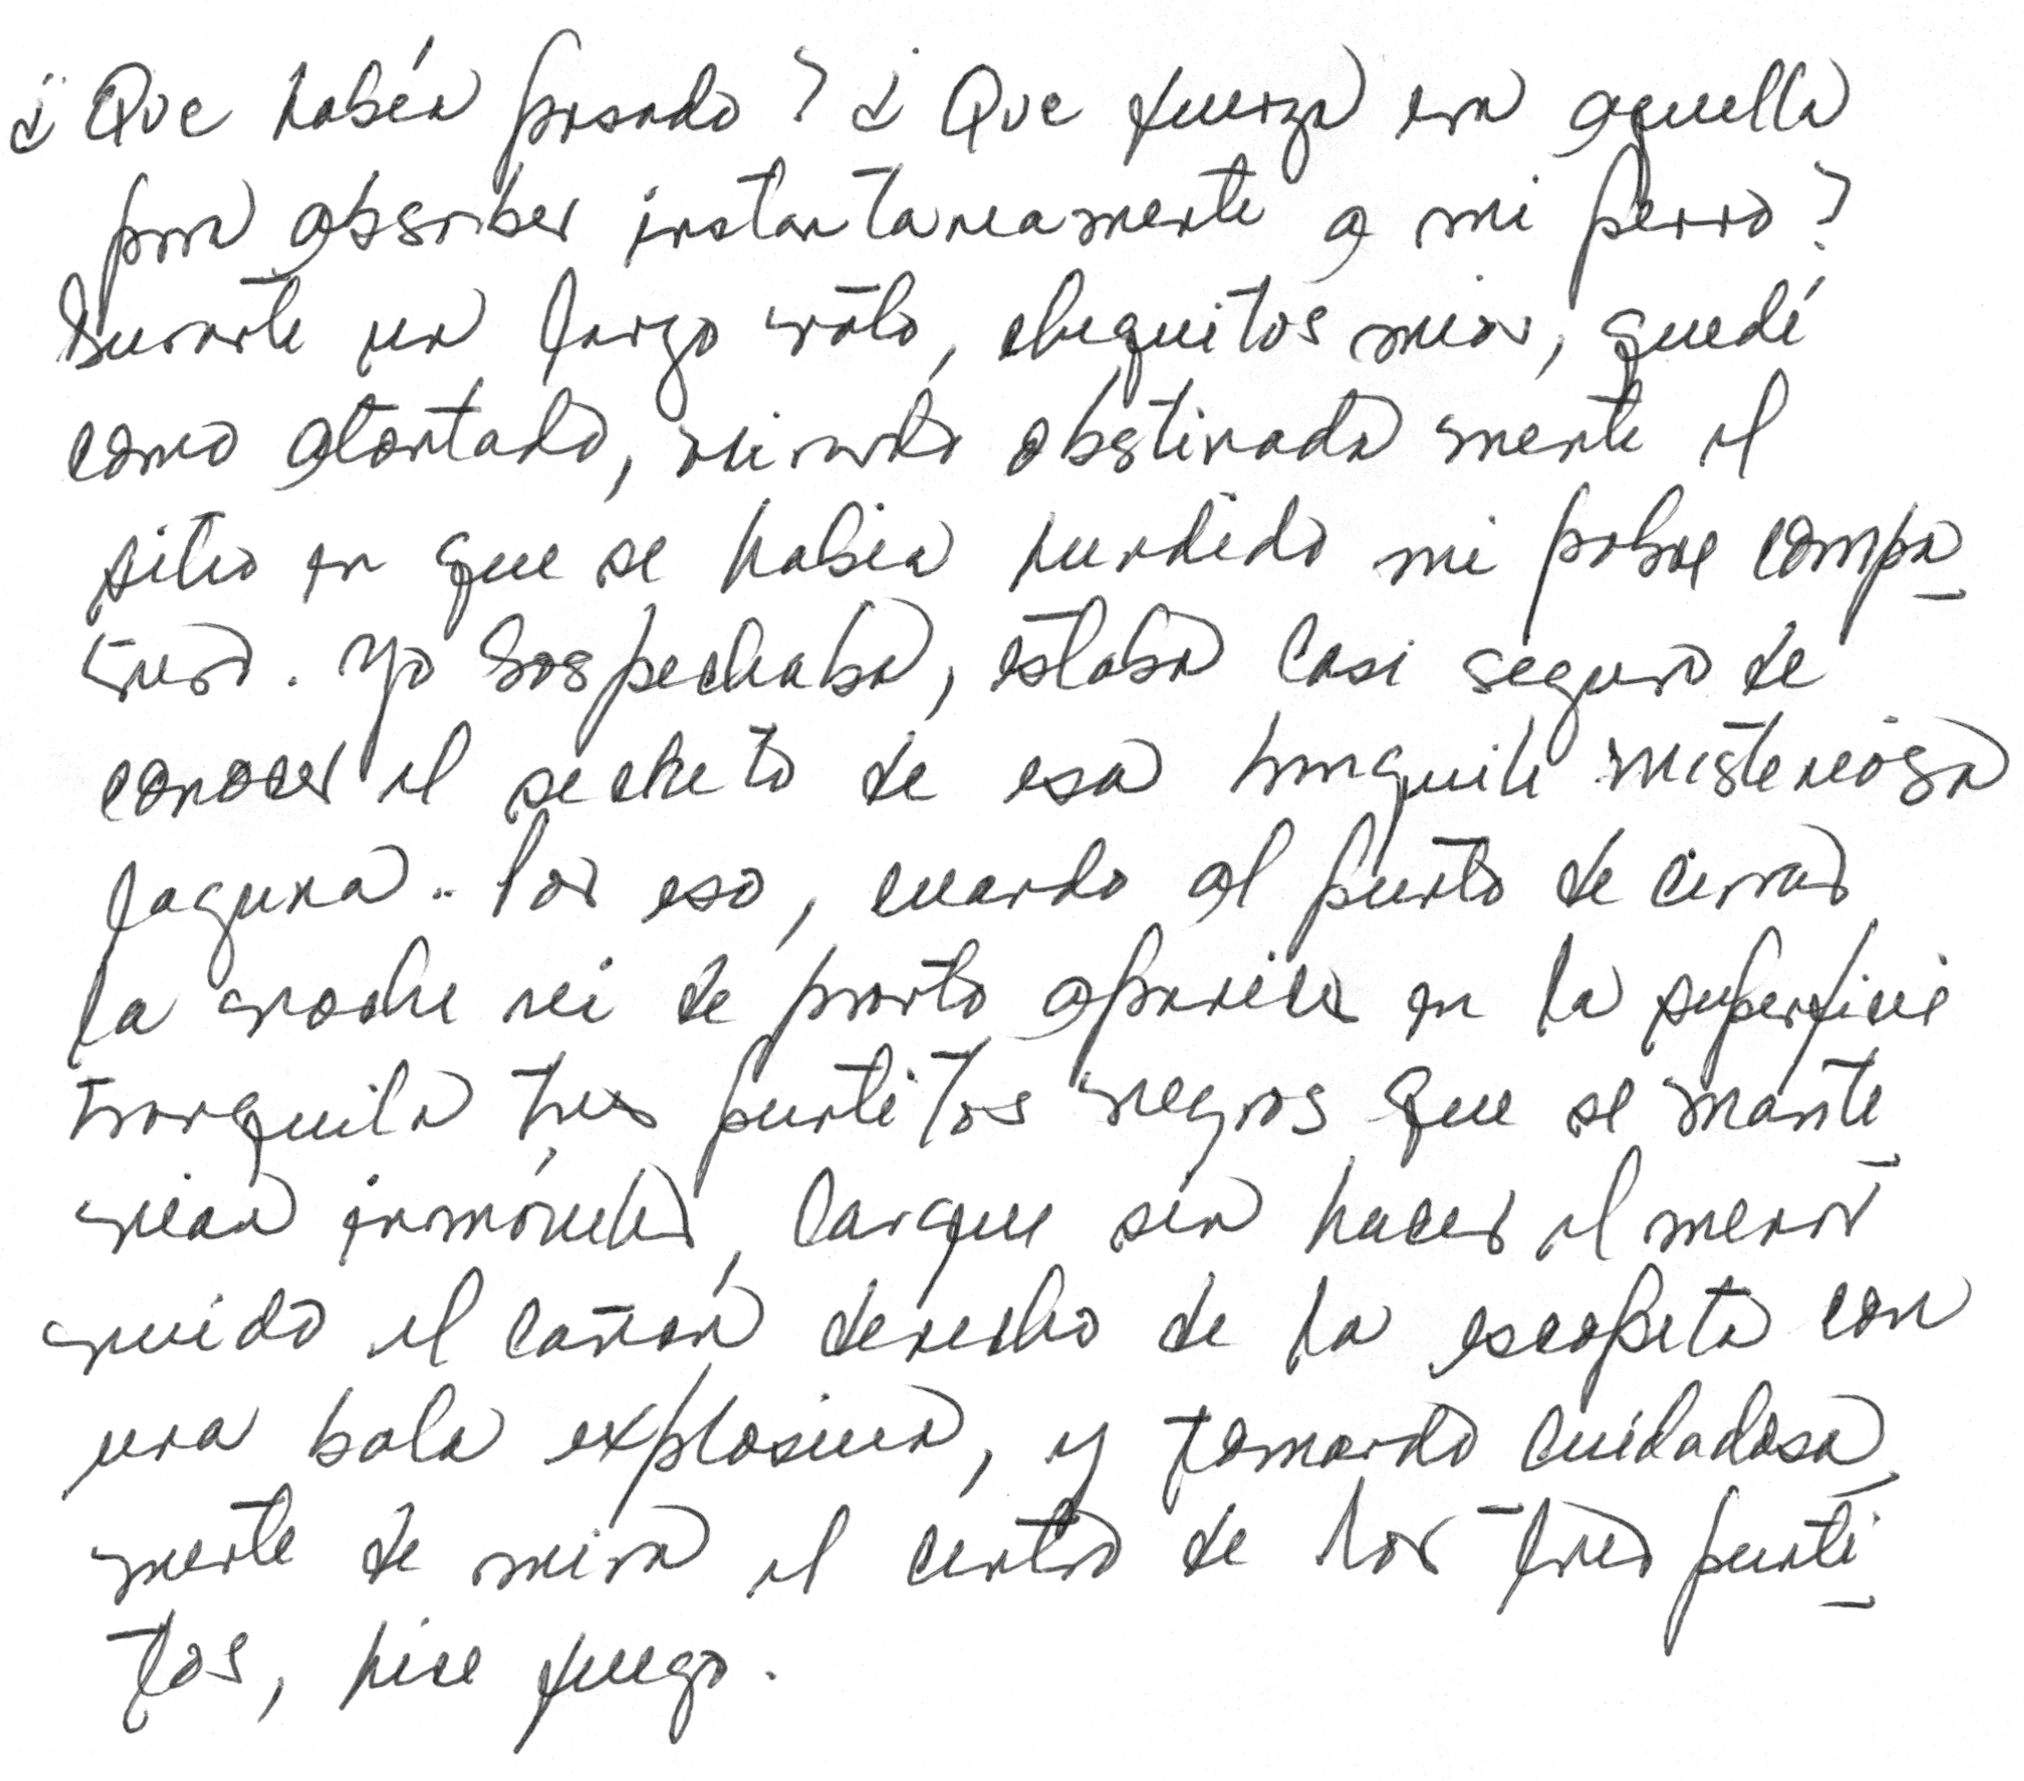 ¿Que había pasado? ¿Que fuerza era aquella
para absorber instantaneamente a mi perro?
Durante un largo rato, chiquitos mios, quedé
como atontado, mirando obstinadamente el
sitio en que se habia hundido mi pobre compa-
ñero. Yo sospechaba, estaba casi seguro de
conocer el secreto de esa tranquila misteriosa
laguna. Por eso, cuando al punto de cerrar
la noche vi de pronto aparecer en la superficie
tranquila tres puntitos negros que se mante-
nian inmóviles, cargue sin hacer el menor
ruido el cañon derecho de la escopeta con
una bala explosiva, y tomando cuidadosa-
mente de mira el centro de los tres punti-
tos, hice fuego.